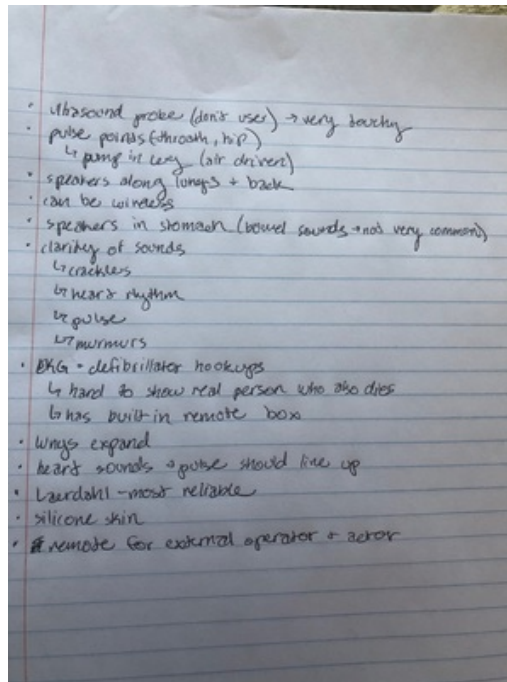 • ultrasound probe (don't user) → very touchy
• pulse points (throath, hip)
↳ pump in leg (air driven)
• speakers along lungs + back
• can be wireless
• speakers in stomach (bowel sounds → not very common)
• clarity of sounds
↳ crackles
↳ heart rhythm
↳ pulse
↳ murmurs
• EKG + defibrillator hookups
↳ hard to show real person who also dies
↳ has built-in remote box
• lungs expand
• heart sounds + pulse should line up
• Laerdahl - most reliable
• silicone skin
• remote for external operator + actor